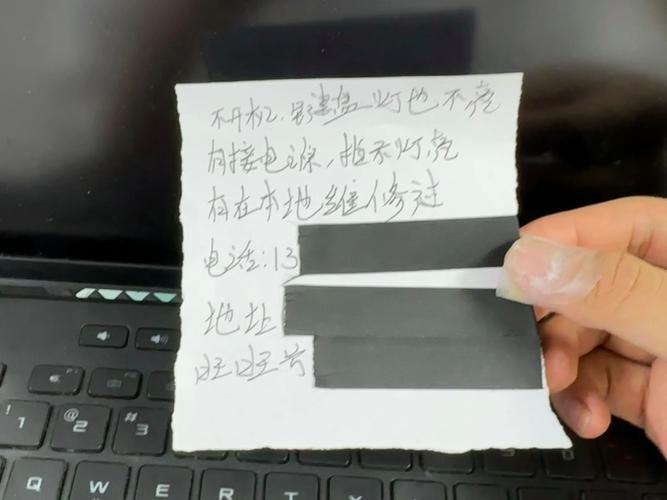 不开机,键盘灯也不亮
有接电源,指示灯亮
有在本地维修过
电话:13
地址
旺旺号
! 1
@ 2
# 3
Q W E R T Y